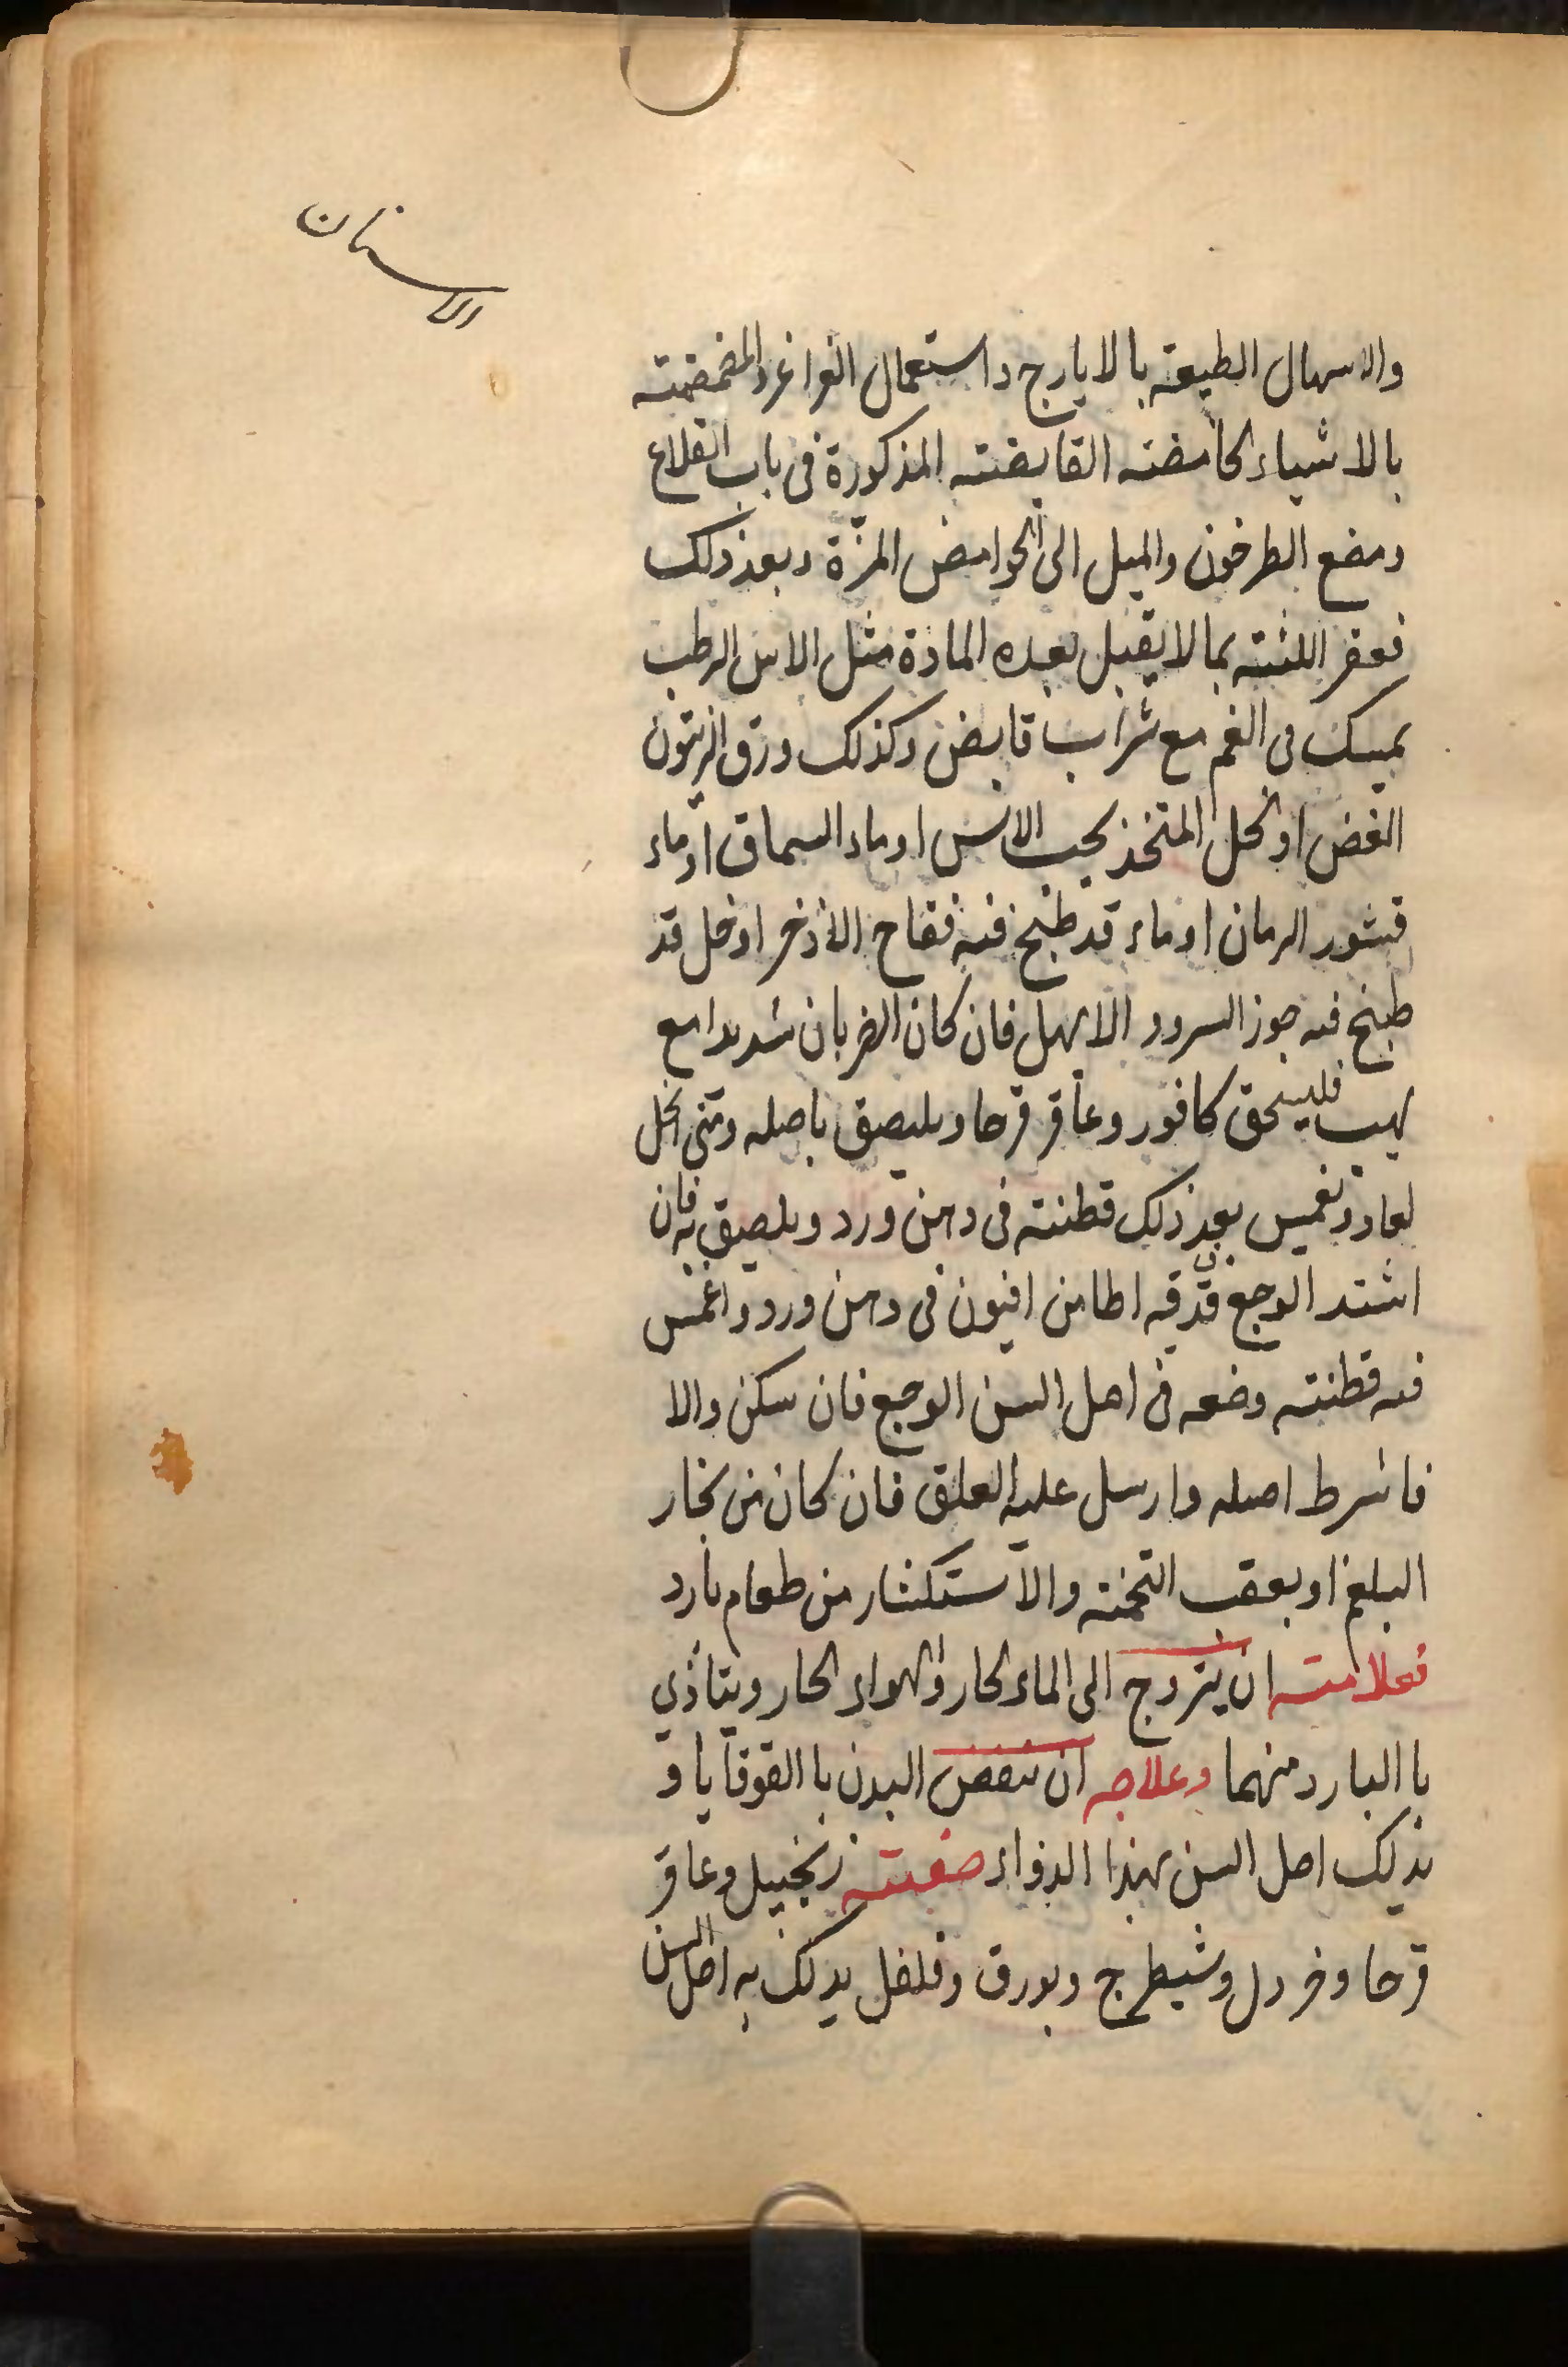 الاسنان
والاسهال الطبيعة بالايارج واستعمال الغراغر والمضمضة
بالاشياء الحامضة القابضة المذكورة فى باب القلاع
ومضغ الطرخون والميل الى الحوامض المزّة وبعد ذلك
فعفر اللثة بما لا يقبل بعده المادة مثل الاس الرطب
يمسك فى الفم مع شراب قابض وكذلك ورق الزيتون
الغض او الخل المتخذ بحب الاس او ماء السماق او ماء
قشور الرمان او ماء قد طبخ فيه فقاح الاذخر او خل قد
طبخ فيه جوز السرو و الابهل فان كان الضربان شديدا مع
لهيب فليسحق كافور وعاقر قرحا ويلصق باصله ومتى انحل
يعاد وتغمس بعد ذلك قطنة فى دهن ورد ويلصق به فان
اشتد الوجع فدق قيراطا من افيون فى دهن ورد واغمس
فيه قطنة وضعه فى اصل السن الوجع فان سكن والا
فاشرط اصله وارسل عليه العلق فان كان من بخار
البلغم او بعقب التخمة والاستكثار من طعام بارد
فعلامته ان يتروح الى الماء الحار والهواء الحار ويتأذي
با البارد منهما وعلاجه ان ينفض البدن با القوقايا و
يدلك اصل السن بهذا الدواء صفته زنجبيل وعاقر
قرحا وخردل وشيطرج وبورق وفلفل يدلك به اصل السن